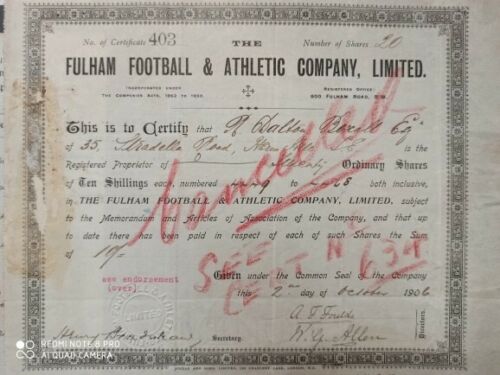 No. of Certificate 403 THE Number of Shares 20
FULHAM FOOTBALL & ATHLETIC COMPANY, LIMITED.
INCORPORATED UNDER
THE COMPANIES ACTS, 1862 TO 1900.
REGISTERED OFFICE:
FULHAM ROAD, S.W.
This is to Certify that Dalton Esq
of 55, Road, is the
Registered Proprietor of Twenty Ordinary Shares
of Ten Shillings each, numbered to both inclusive,
in THE FULHAM FOOTBALL & ATHLETIC COMPANY, LIMITED, subject
to the Memorandum and Articles of Association of the Company, and that up
to date there has been paid in respect of each of such Shares the Sum
of
Cancelled
SEE
CERT N 634
see endorsement
(over)
Given under the Common Seal of the Company
this 2nd day of October 1906
LIMITED
Henry Secretary.
W. G. Allen
Directors.
REDMI NOTE 8 PRO
AI QUAD CAMERA